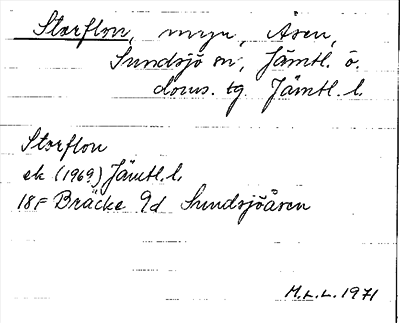 Storflon, myr, Åsen,
Sundsjö sn, Jämtl. ö.
doms. tg Jämtl. l.
Storflon
ek (1969) Jämtl. l.
18F Bräcke 9d Sundsjöåsen
M.L.L. 1971